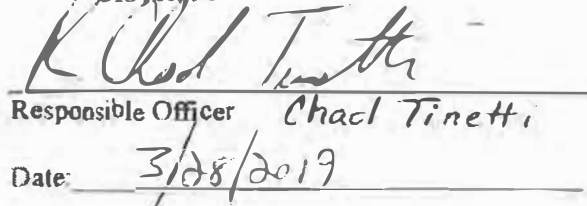 K Chad Tinetti
Responsible Officer Chad Tinetti
Date: 3/28/2019